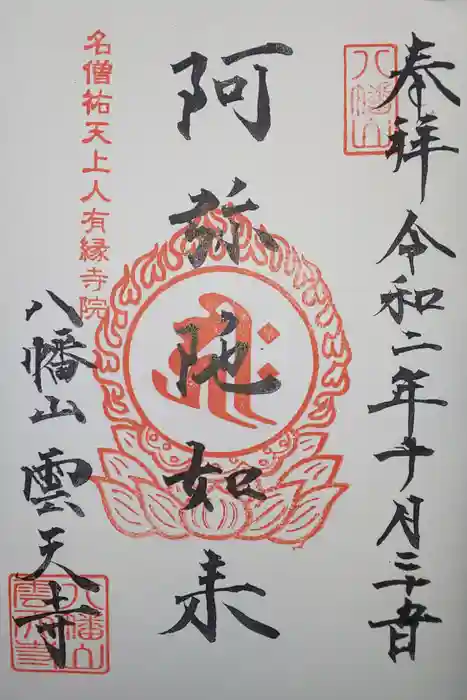 奉拝 令和二年十月二十五日
八幡山
阿弥陀如来
名僧祐天上人有縁寺院
八幡山 雲天寺
八幡山
雲天寺